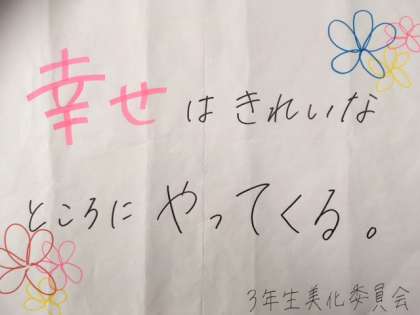 幸せはきれいな
ところにやってくる。
3年生美化委員会